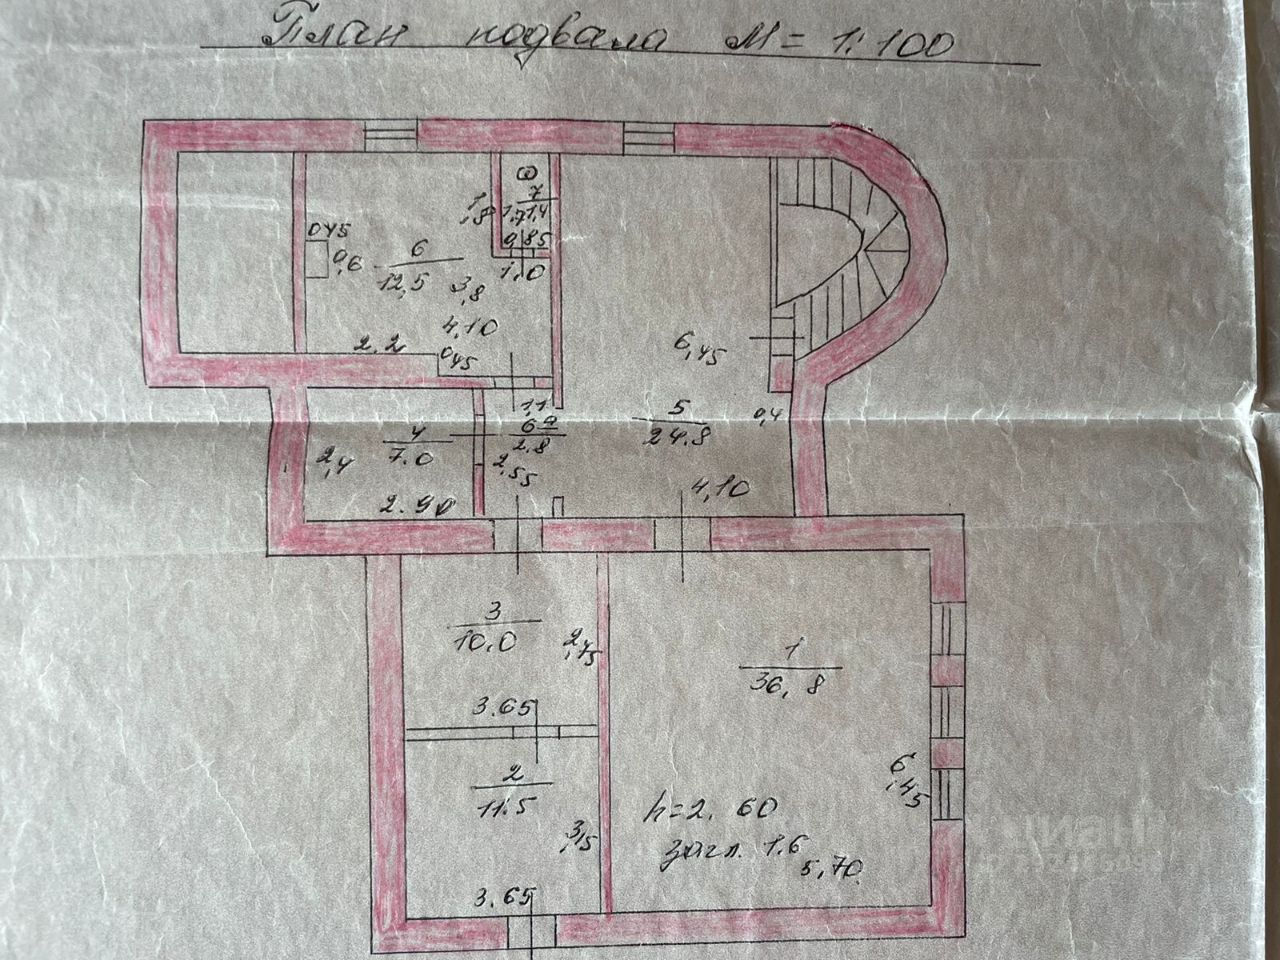 План подвала М = 1:100
7
1,8 1,7 1,4
0,45 0,85
6
0,6 12,5 3,8 1,0
4,10
2.2 0,45 6,45
1,1 5
4 6а 0,4
2,4 7.0 2.8 24.8
2,55
2.90 4,10
3
10.0 2,75 1
36,8
3.65
2 6,45
11.5 h=2.60
3,15 загл. 1.6
5,70
3.65